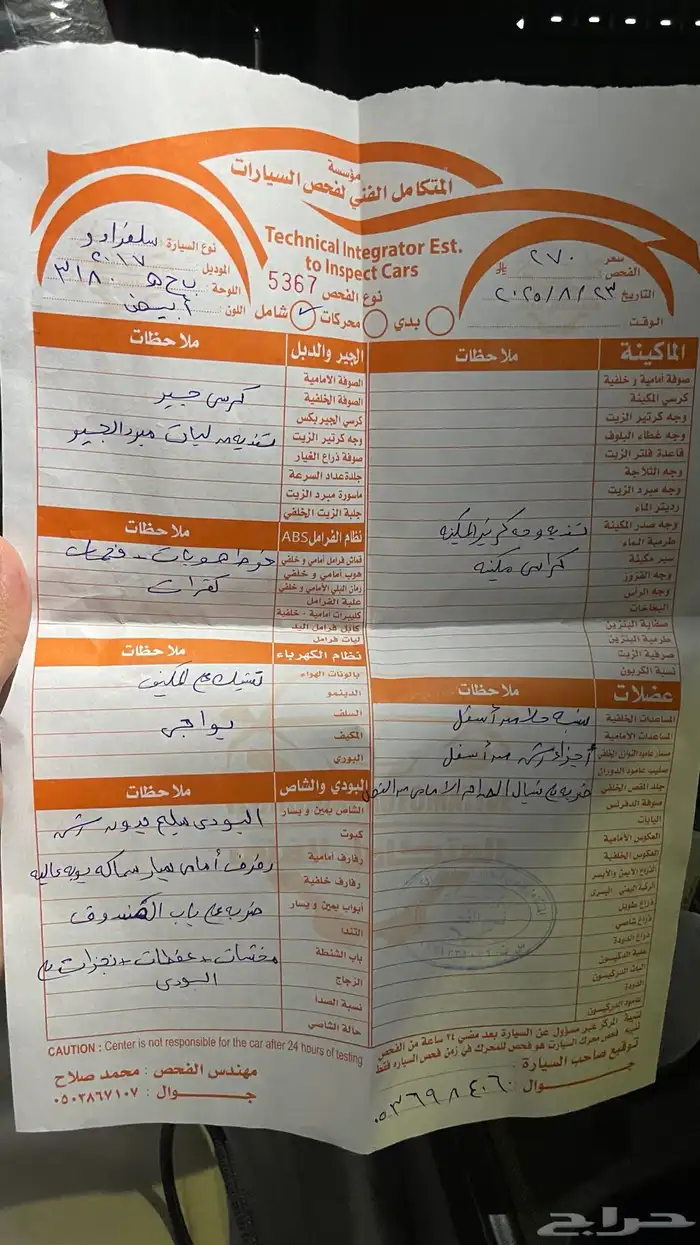 مؤسسة
المتكامل الفني لفحص السيارات
Technical Integrator Est.
to Inspect Cars
5367
نوع السيارة : سلفرادو
الموديل : ٢٠١٧
اللوحة : ٣١٨٠
اللون : أبيض
سعر الفحص : ٢٧٠
التاريخ ٢٠٢٥/٨/٢٣
الوقت
نوع الفحص
بدي محركات شامل
الماكينة ملاحظات
صوفة أمامية و خلفية
كرسي المكينة
وجه كرتير الزيت
وجه غطاء البلوف
قاعدة فلتر الزيت
وجه الثلاجة
وجه مبرد الزيت
رديتر الماء
وجه صدر المكينة
تنديه وجه كرتير المكينه
طرمبة الماء
سير مكينة
كراسي مكينه
وجه القزوز
وجه الرأس
البخاخات
صفاية البنزين
طرمبة البنزين
صرفية الزيت
نسبة الكربون
عضلات ملاحظات
المساعدات الخلفية
المساعدات الامامية
أجزاء رش من أسفل
صليب عامود الدوران
جلد المقص الخلفي
صوفة الدفرنس
اليايات
العكوس الأمامية
العكوس الخلفية
الذراع الأيمن والأيسر
الركبة اليمنى اليسرى
ذراع طويل
ذراع شاصي
ذراع الدودة
علبة الدكيسون
الدودة
عامود الدركسون
الجير والدبل ملاحظات
الصوفة الامامية
الصوفة الخلفية
كرسي جير
كرسي الجير بكس
وجه كرتير الزيت
تنديه من ليات مبرد الجير
صوفة ذراع الغيار
جلدة عداد السرعة
ماسورة مبرد الزيت
جلبة الزيت الخلفي
نظام الفرامل ABS ملاحظات
قماش فرامل أمامي و خلفي
هوب أمامي و خلفي
رمان البلي الأمامي و خلفي
علبة الفرامل
كليبرات امامية - خلفية
كابل فرامل اليد
ليات فرامل
نظام الكهرباء ملاحظات
بالونات الهواء
تشيك على المكيف
الدينمو
السلف
بواجي
المكيف
البوري
البودي والشاص ملاحظات
الشاص يمين و يسار
كبوت
رفارف أمامية
رفارف خلفية
أبواب يمين و يسار
ضربه على باب الصندوق
التندا
باب الشنطة
الزجاج
نسبة الصدأ
حالة الشاصي
البودي
CAUTION : Center is not responsible for the car after 24 hours of testing
مهندس الفحص : محمد صلاح
جوال : ٠٥٠٢٨٦٧١٠٧
المركز غير مسؤول عن السيارة بعد مضي ٢٤ ساعة من الفحص
فحص محرك السيارة هو فحص للمحرك في زمن فحص السيارة فقط
توقيع صاحب السيارة :
جوال : ٠٥٣٦٩٨٤٠٦٠
حراج